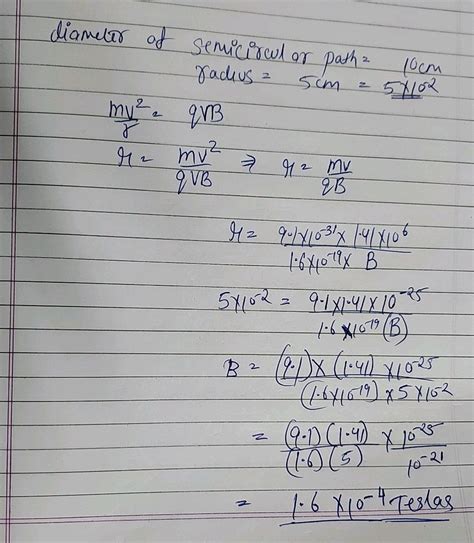 diameter of semicircular path = 10cm
radius = 5cm = 5×10-2
mv²/r = qVB
r = mv²/qVB ⇒ r = mv/qB
r = 9.1×10-31 × 1.41×10^6 / 1.6×10-19 × B
5×10-2 = 9.1×1.41×10-25 / 1.6×10-19 (B)
B = (9.1)×(1.41)×10-25 / (1.6×10-19)×5×10-2
= (9.1)(1.41) × 10-25 / (1.6)(5) 10-21
= 1.6×10-4 Teslas